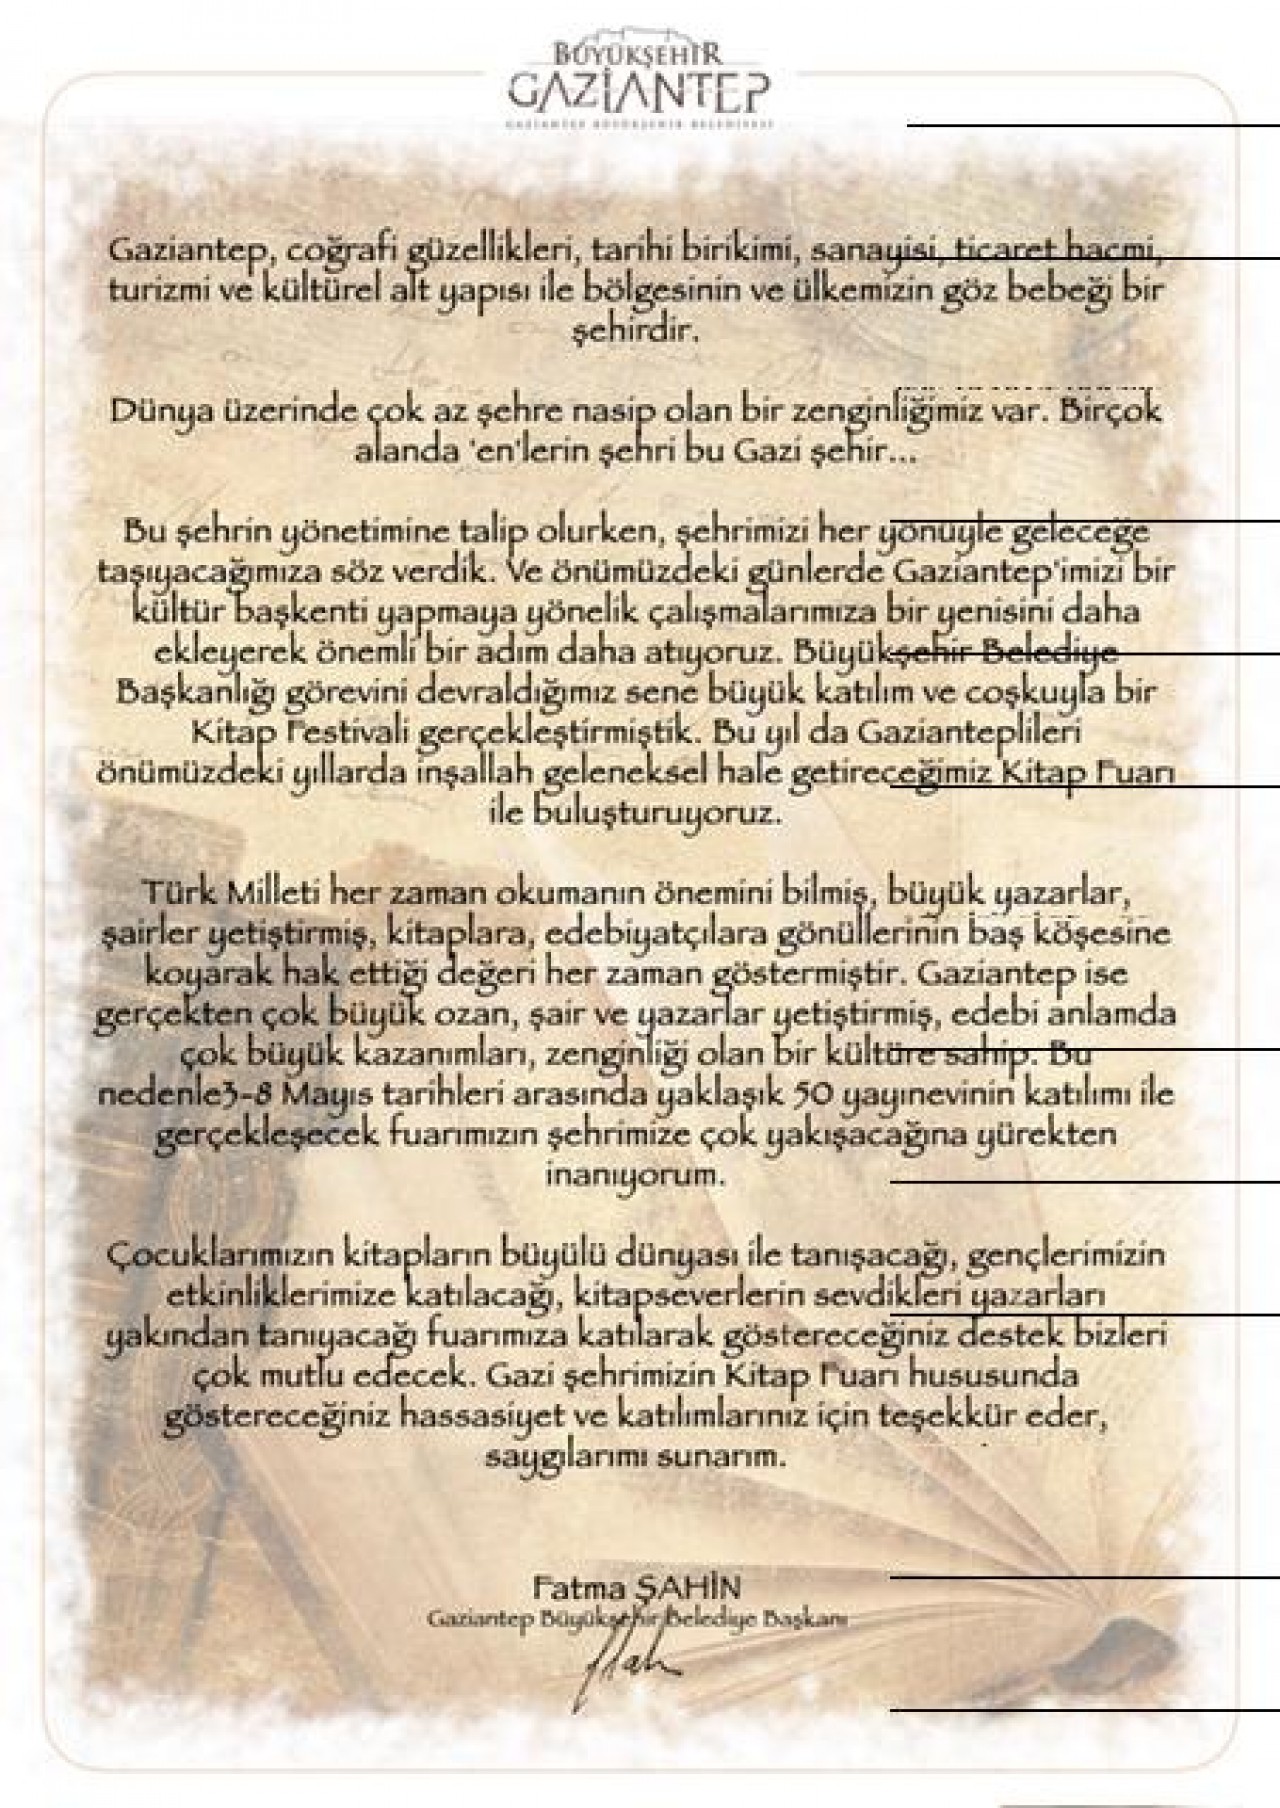 BÜYÜKŞEHİR
GAZİANTEP
GAZİANTEP BÜYÜKŞEHİR BELEDİYESİ
Gaziantep, coğrafi güzellikleri, tarihi birikimi, sanayisi, ticaret hacmi,
turizmi ve kültürel alt yapısı ile bölgesinin ve ülkemizin göz bebeği bir
şehirdir.
Dünya üzerinde çok az şehre nasip olan bir zenginliğimiz var. Birçok
alanda 'en'lerin şehri bu Gazi şehir...
Bu şehrin yönetimine talip olurken, şehrimizi her yönüyle geleceğe
taşıyacağımıza söz verdik. Ve önümüzdeki günlerde Gaziantep'imizi bir
kültür başkenti yapmaya yönelik çalışmalarımıza bir yenisini daha
ekleyerek önemli bir adım daha atıyoruz. Büyükşehir Belediye
Başkanlığı görevini devraldığımız sene büyük katılım ve coşkuyla bir
Kitap Festivali gerçekleştirmiştik. Bu yıl da Gazianteplileri
önümüzdeki yıllarda inşallah geleneksel hale getireceğimiz Kitap Fuarı
ile buluşturuyoruz.
Türk Milleti her zaman okumanın önemini bilmiş, büyük yazarlar,
şairler yetiştirmiş, kitaplara, edebiyatçılara gönüllerinin baş köşesine
koyarak hak ettiği değeri her zaman göstermiştir. Gaziantep ise
gerçekten çok büyük ozan, şair ve yazarlar yetiştirmiş, edebi anlamda
çok büyük kazanımları, zenginliği olan bir kültüre sahip. Bu
nedenle3-8 Mayıs tarihleri arasında yaklaşık 50 yayınevinin katılımı ile
gerçekleşecek fuarımızın şehrimize çok yakışacağına yürekten
inanıyorum.
Çocuklarımızın kitapların büyülü dünyası ile tanışacağı, gençlerimizin
etkinliklerimize katılacağı, kitapseverlerin sevdikleri yazarları
yakından tanıyacağı fuarımıza katılarak göstereceğiniz destek bizleri
çok mutlu edecek. Gazi şehrimizin Kitap Fuarı hususunda
göstereceğiniz hassasiyet ve katılımlarınız için teşekkür eder,
saygılarımı sunarım.
Fatma ŞAHİN
Gaziantep Büyükşehir Belediye Başkanı